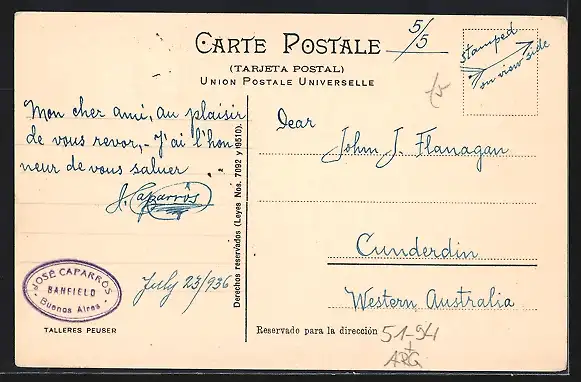 5/5
CARTE POSTALE
(TARJETA POSTAL)
UNION POSTALE UNIVERSELLE
Stamped
on view side
Mon cher ami, au plaisir
de vous revor,- J'ai l'hon
neur de vous saluer
J. Caparrós
JOSÉ CAPARRÓS
BANFIELD
Buenos Aires
July 23/936
TALLERES PEUSER
Derechos reservados (Leyes Nos. 7092 y 9510).
Dear
John J. Flanagan
Cunderdin
Western, Australia
Reservado para la dirección
51-94
+
ARG